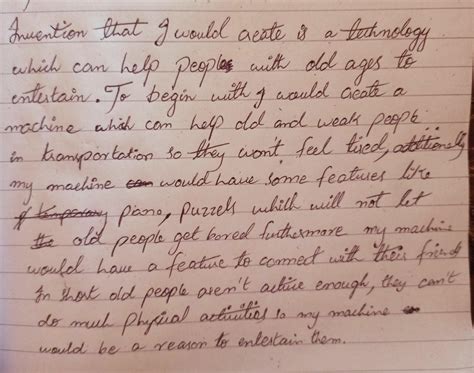 Invention that I would create is a technology
which can help people with old ages to
entertain. To begin with I would create a
machine which can help old and weak people
in transportation so they won't feel tired, additionally
my machine would have some features like
piano, puzzels which will not let
old people get bored furthermore my machine
would have a feature to connect with their friends
In short old people aren't active enough, they can't
do much physical activities so my machine
would be a reason to entertain them.